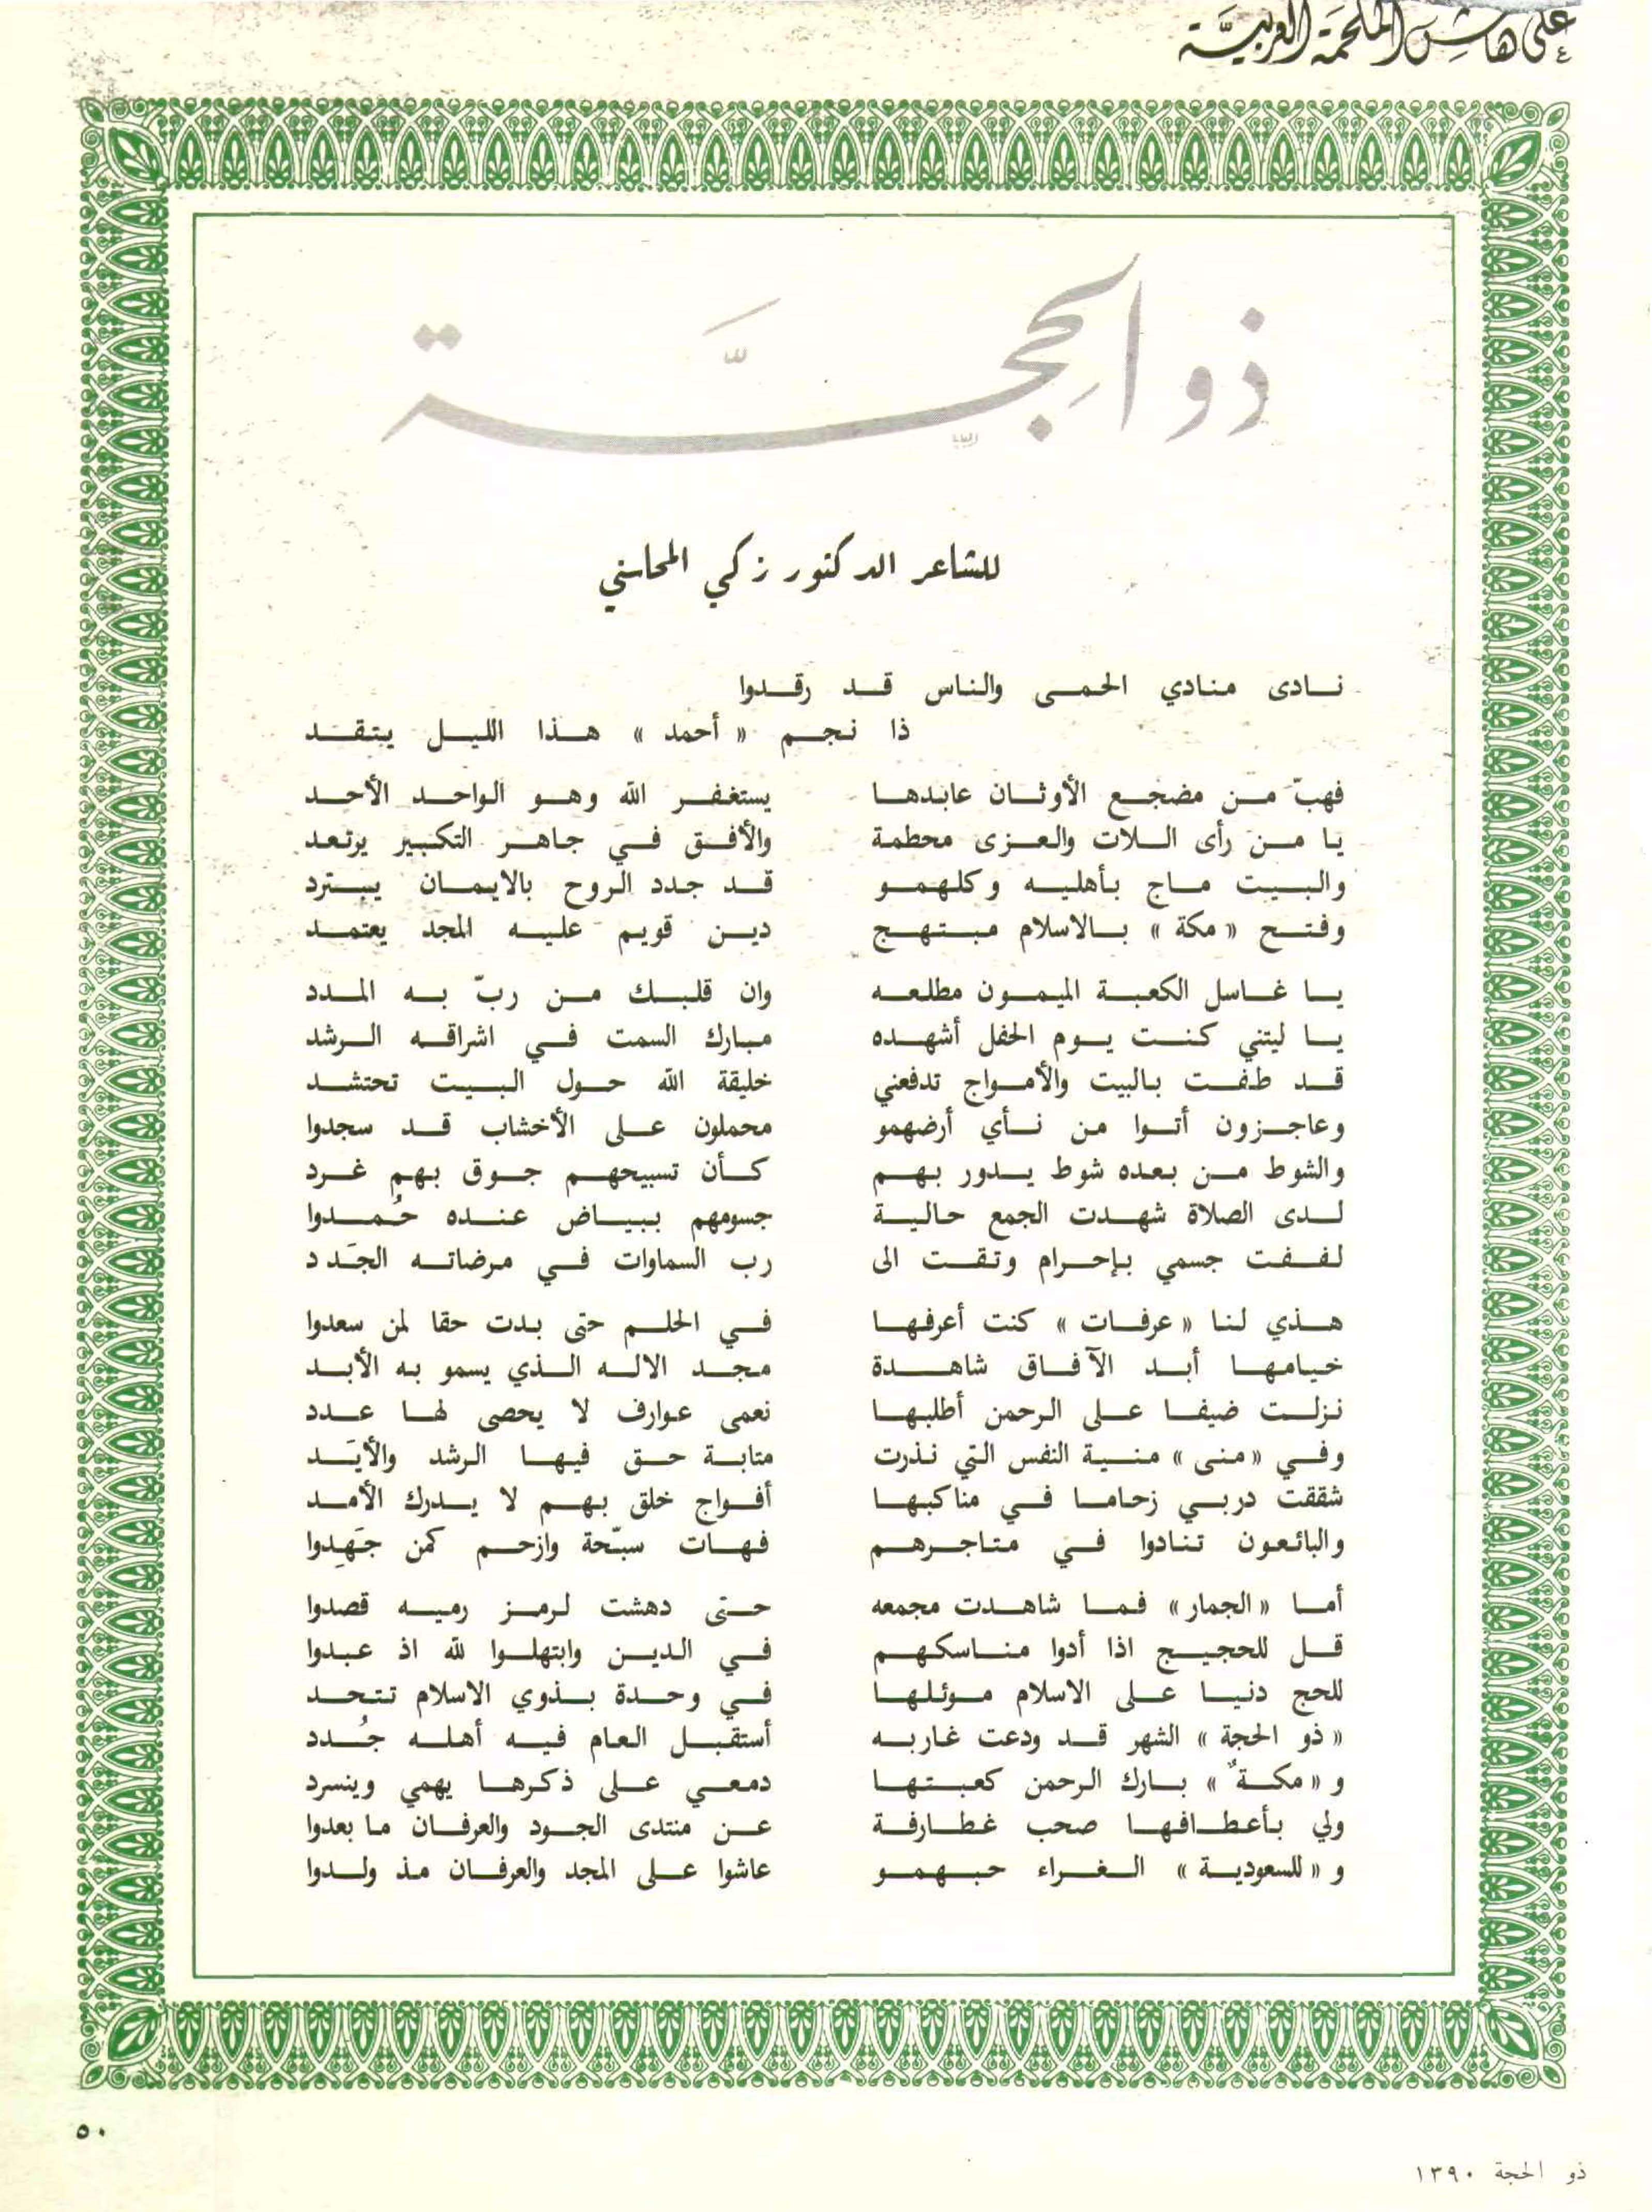 على هامش الملحمة العربية
ذو الحجة
للشاعر الدكتور زكي المحاسني
نادى منادي الحمى والناس قد رقدوا
ذا نجم « أحمد » هذا الليل يتقد
فهبّ من مضجع الأوثان عابدها يستغفر الله وهو الواحد الأحد
يا من رأى اللات والعزى محطمة والأفق في جاهر التكبير يرتعد
والبيت ماج بأهليه وكلهمو قد جدد الروح بالايمان يسترد
وفتح « مكة » بالاسلام مبتهج دين قويم عليه المجد يعتمد
يا غاسل الكعبة الميمون مطلعه وان قلبك من ربّ به المدد
يا ليتني كنت يوم الحفل أشهده مبارك السمت في اشراقه الرشد
قد طفت بالبيت والأمواج تدفعني خليقة الله حول البيت تحتشد
وعاجزون أتوا من نأي أرضهمو محملون على الأخشاب قد سجدوا
والشوط من بعده شوط يدور بهم كأن تسبيحهم جوق بهم غرد
لدى الصلاة شهدت الجمع حالية جسومهم ببياض عنده حُمدوا
لففت جسمي بإحرام وتقت الى رب السماوات في مرضاته الجَدد
هذي لنا « عرفات » كنت أعرفها في الحلم حتى بدت حقا لمن سعدوا
خيامها أبد الآفاق شاهدة مجد الاله الذي يسمو به الأبد
نزلت ضيفا على الرحمن أطلبها نعمى عوارف لا يحصى لها عدد
وفي « منى » منية النفس التي نذرت متابة حق فيها الرشد والأيَد
شققت دربي زحاما في مناكبها أفواج خلق بهم لا يدرك الأمد
والبائعون تنادوا في متاجرهم فهات سبّحة وازحم كمن جَهِدوا
أما « الجمار » فما شاهدت مجمعه حتى دهشت لرمز رميه قصدوا
قل للحجيج اذا أدوا مناسكهم في الدين وابتهلوا لله اذ عبدوا
للحج دنيا على الاسلام موئلها في وحدة بذوي الاسلام تتحد
« ذو الحجة » الشهر قد ودعت غاربه أستقبل العام فيه أهله جُدد
و « مكةٌ » بارك الرحمن كعبتها دمعي على ذكرها يهمي وينسرد
ولي بأعطافها صحب غطارفة عن منتدى الجود والعرفان ما بعدوا
و « للسعودية » الغراء حبهمو عاشوا على المجد والعرفان مذ ولدوا
٥٠
ذو الحجة ١٣٩٠